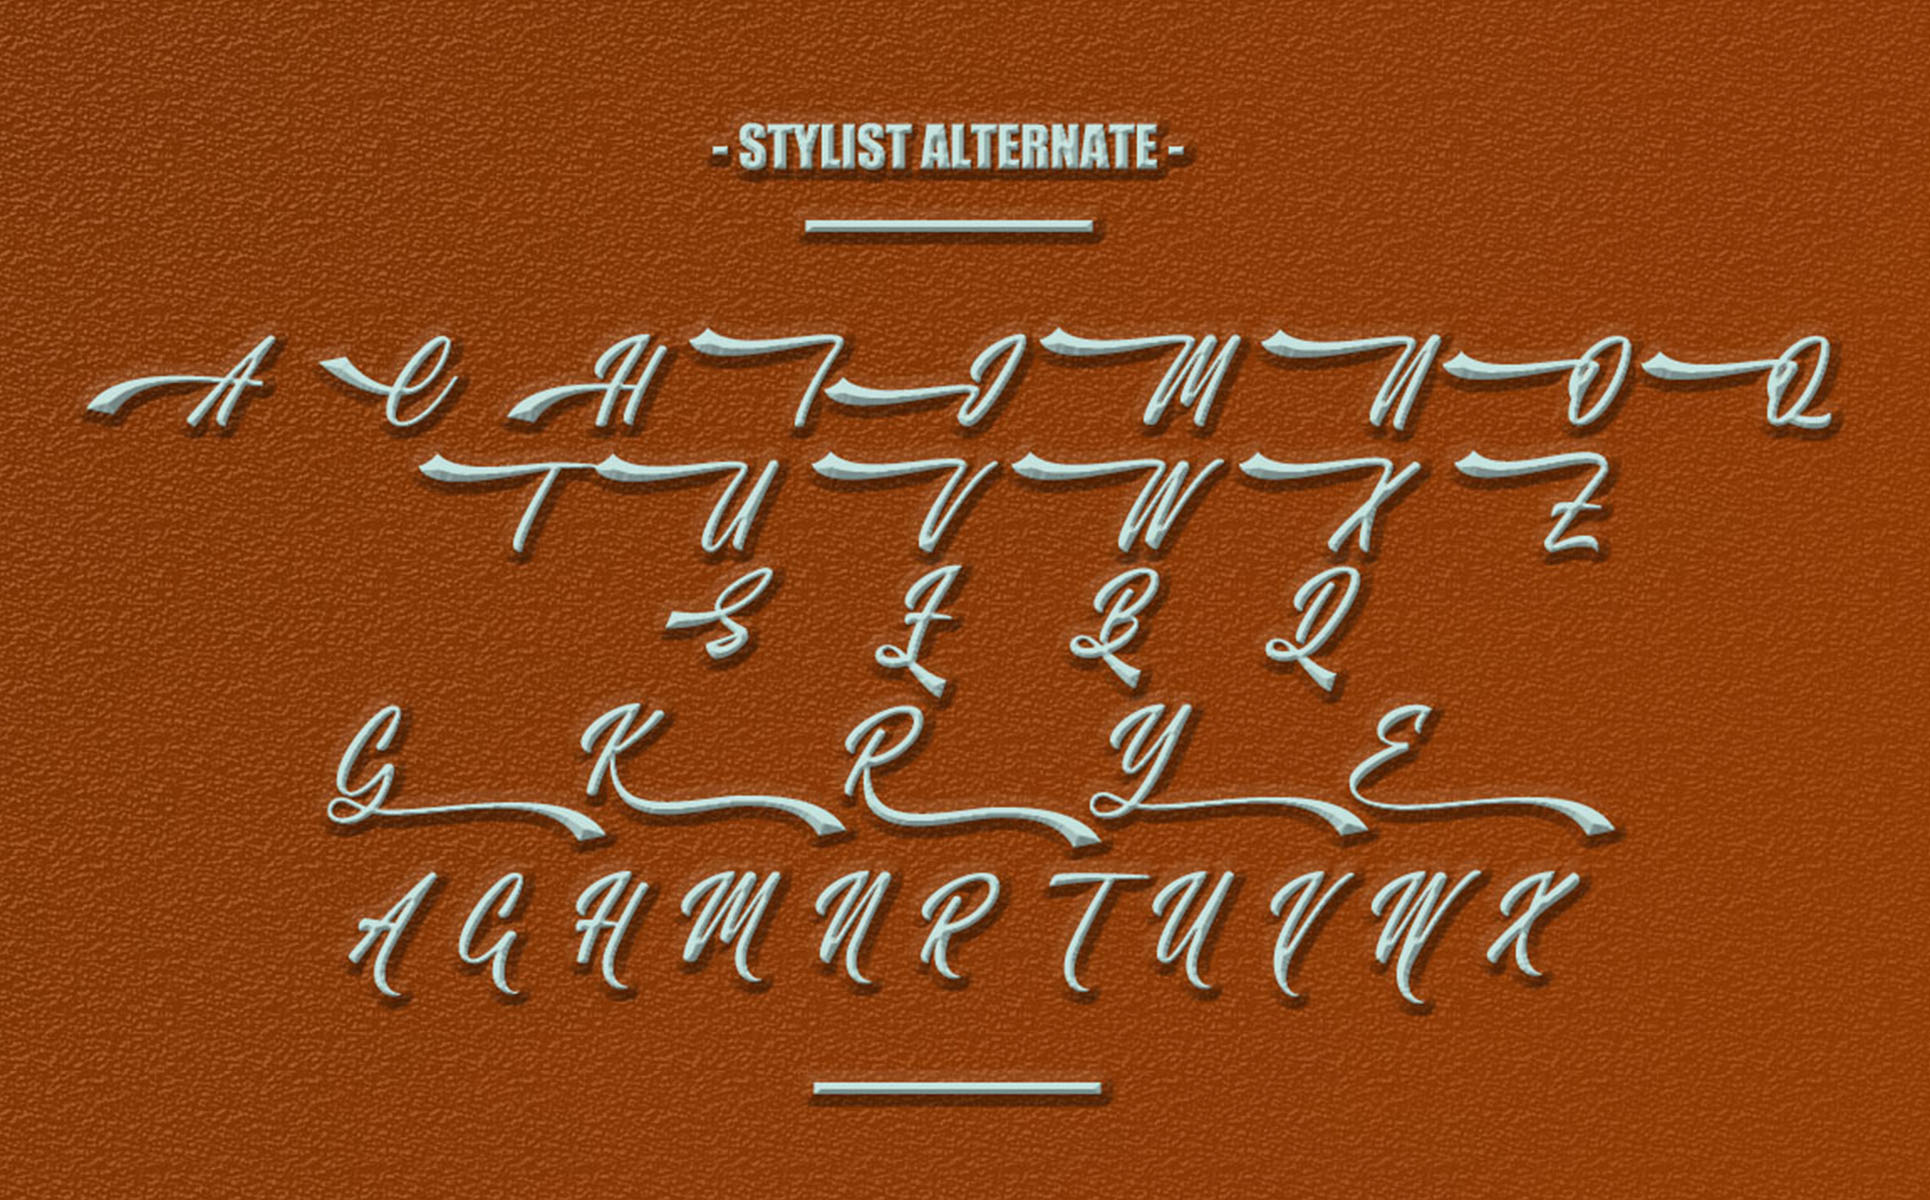 - STYLIST ALTERNATE -
A C H I J M N O Q
T U V W X Z
S F B D
G K R Y E
A G H M N R T U V W X